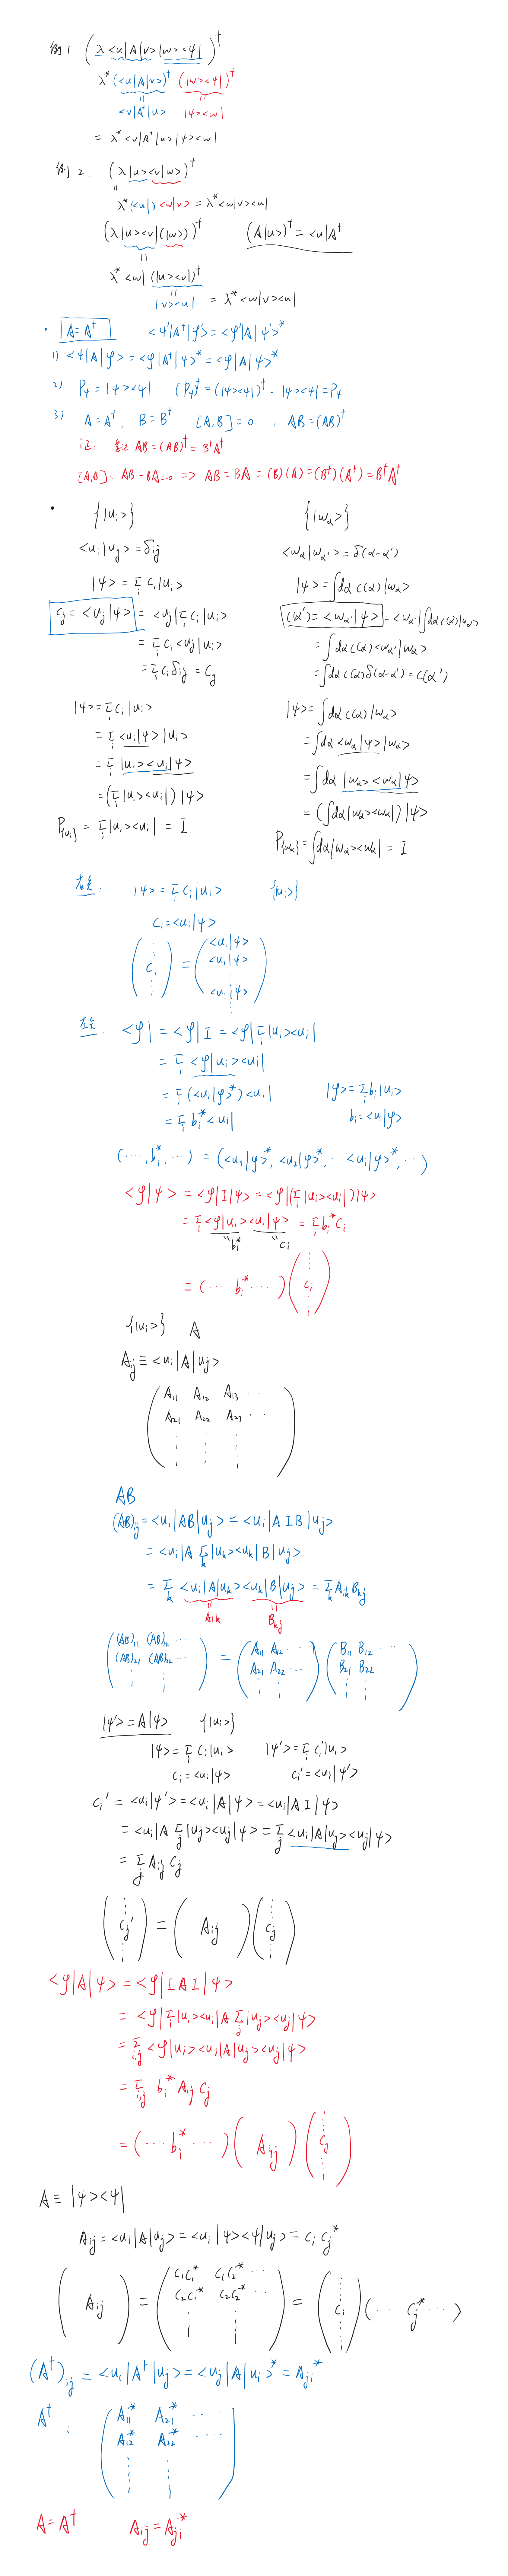 例1 (λ<u|A|v>|w><ψ|)†
λ*(<u|A|v>)† (|w><ψ|)†
<v|A†|u> |ψ><w|
= λ*<v|A†|u>|ψ><w|
例2 (λ|u><v|w>)†
λ*(<u|) <w|v> = λ*<w|v><u|
(λ|u><v|(|w>))† (A|u>)† = <u|A†
λ*<w|(|u><v|)†
|v><u| = λ*<w|v><u|
· |A = A†| <ψ'|A†|φ'> = <φ'|A|ψ'>*
1) <ψ|A|φ> = <φ|A†|ψ>* = <φ|A|ψ>*
2) Pψ = |ψ><ψ| (Pψ)† = (|ψ><ψ|)† = |ψ><ψ| = Pψ
3) A = A†, B = B† [A,B] = 0 , AB = (AB)†
证: AB = (AB)† = B†A†
[A,B] = AB - BA = 0 => AB = BA = (B)(A) = (B†)(A†) = B†A†
· {|ui>} {|wα>}
<ui|uj> = δij <wα|wα'> = δ(α-α')
|ψ> = Σi ci|ui> |ψ> = ∫dα c(α)|wα>
cj = <uj|ψ> = <uj|Σi ci|ui> c(α') = <wα'|ψ> = <wα'|∫dα c(α)|wα>
= Σi ci <uj|ui> = ∫dα c(α)<wα'|wα>
= Σi ci δij = cj = ∫dα c(α)δ(α-α') = c(α')
|ψ> = Σi ci|ui> |ψ> = ∫dα c(α)|wα>
= Σi <ui|ψ>|ui> = ∫dα <wα|ψ>|wα>
= Σi |ui><ui|ψ> = ∫dα |wα><wα|ψ>
= (Σi |ui><ui|)|ψ> = (∫dα|wα><wα|)|ψ>
P{ui} = Σi |ui><ui| = I P{wα} = ∫dα|wα><wα| = I.
右矢: |ψ> = Σi ci|ui> {|ui>}
ci = <ui|ψ>
(⋮ ci ⋮) = (<u1|ψ> <u2|ψ> ⋮ <ui|ψ> ⋮)
左矢: <φ| = <φ|I = <φ|Σi|ui><ui|
= Σi <φ|ui><ui|
= Σi (<ui|φ>*)<ui| |φ> = Σi bi|ui>
= Σi bi*<ui| bi = <ui|φ>
(⋯, bi*, ⋯) = (<u1|φ>*, <u2|φ>*, ⋯ <ui|φ>*, ⋯)
<φ|ψ> = <φ|I|ψ> = <φ|(Σi|ui><ui|)|ψ>
= Σi <φ|ui><ui|ψ> = Σi bi* ci
bi* ci
= (⋯ bi* ⋯)(⋮ ci ⋮)
{|ui>} A
Aij ≡ <ui|A|uj>
(A11 A12 A13 ⋯
A21 A22 A23 ⋯
⋮ ⋮ ⋮)
AB
(AB)ij = <ui|AB|uj> = <ui|A I B|uj>
= <ui|A Σk|uk><uk|B|uj>
= Σk <ui|A|uk><uk|B|uj> = Σk Aik Bkj
Aik Bkj
((AB)11 (AB)12 ⋯ = (A11 A12 ⋯ ) (B11 B12 ⋯
(AB)21 (AB)22 ⋯ A21 A22 ⋯ B21 B22
⋮ ⋮) ⋮ ⋮ ⋮ ⋮)
|ψ'> = A|ψ> {|ui>}
|ψ> = Σi ci|ui> |ψ'> = Σi ci'|ui>
ci = <ui|ψ> ci' = <ui|ψ'>
ci' = <ui|ψ'> = <ui|A|ψ> = <ui|A I|ψ>
= <ui|A Σj|uj><uj|ψ> = Σj <ui|A|uj><uj|ψ>
= Σj Aij cj
(⋮ cj' ⋮) = (Aij)(⋮ cj ⋮)
<φ|A|ψ> = <φ|I A I|ψ>
= <φ|Σi|ui><ui|A Σj|uj><uj|ψ>
= Σi,j <φ|ui><ui|A|uj><uj|ψ>
= Σi,j bi* Aij cj
= (⋯ bi* ⋯)(Aij)(⋮ cj ⋮)
A ≡ |ψ><ψ|
Aij = <ui|A|uj> = <ui|ψ><ψ|uj> = ci cj*
(Aij) = (c1c1* c1c2* ⋯
c2c1* c2c2* ⋯
⋮ ⋮) = (⋮ ci ⋮)(⋯ cj* ⋯)
(A†)ij = <ui|A†|uj> = <uj|A|ui>* = Aji*
A† : (A11* A21* ⋯
A12* A22* ⋯
⋮ ⋮)
A = A† Aij = Aji*